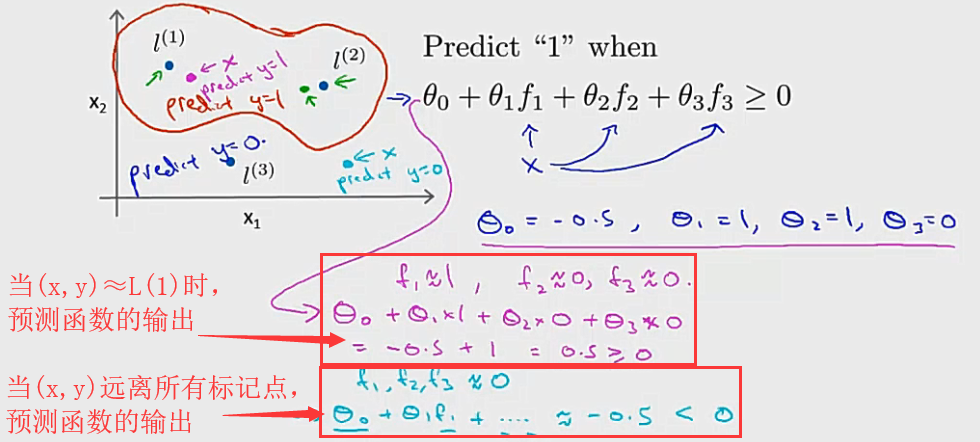 l⁽¹⁾
l⁽²⁾
← x
predict y=1
predict y=1
x₂
predict y=0.
l⁽³⁾
← x
predict y=0
x₁
Predict “1” when
θ₀ + θ₁f₁ + θ₂f₂ + θ₃f₃ ≥ 0
x
θ₀ = -0.5 , θ₁=1, θ₂=1, θ₃=0
当(x,y)≈L(1)时，
预测函数的输出
f₁≈1 , f₂≈0, f₃≈0.
θ₀ + θ₁×1 + θ₂×0 + θ₃×0
= -0.5 + 1 = 0.5 ≥ 0
当(x,y)远离所有标记点，
预测函数的输出
f₁, f₂, f₃ ≈ 0
θ₀ + θ₁f₁ + .... ≈ -0.5 < 0